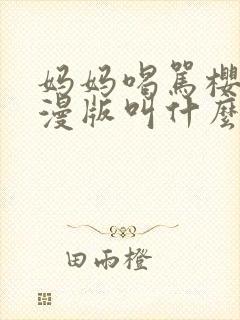 妈妈喝骂樱
漫版叫什麼
田雨橙